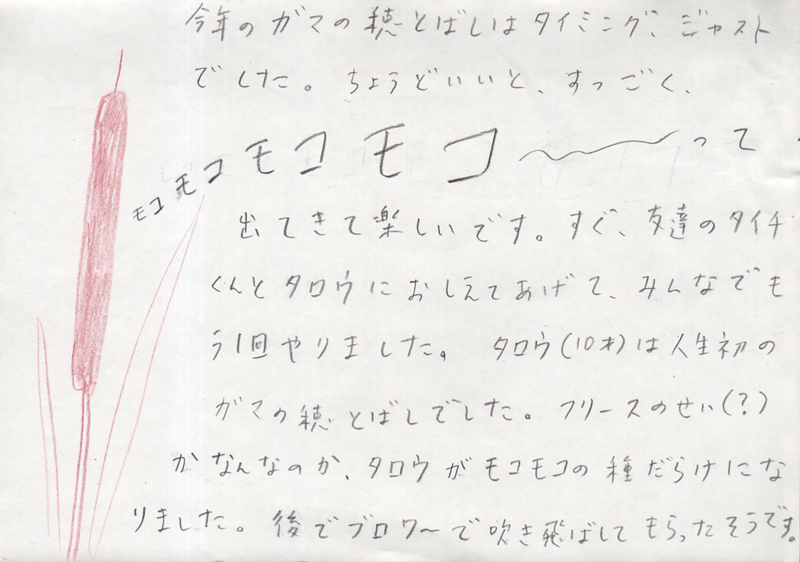 今年のガマの穂とばしはタイミング、ジャスト
でした。ちょうどいいと、すっごく、
モコモコモコモコ〜って
出てきて楽しいです。すぐ、友達のタイチ
くんとタロウにおしえてあげて、みんなでも
う1回やりました。タロウ(10才)は人生初の
ガマの穂とばしでした。フリースのせい(?)
かなんなのか、タロウがモコモコの種だらけにな
りました。後でブロワーで吹き飛ばしてもらったそうです。